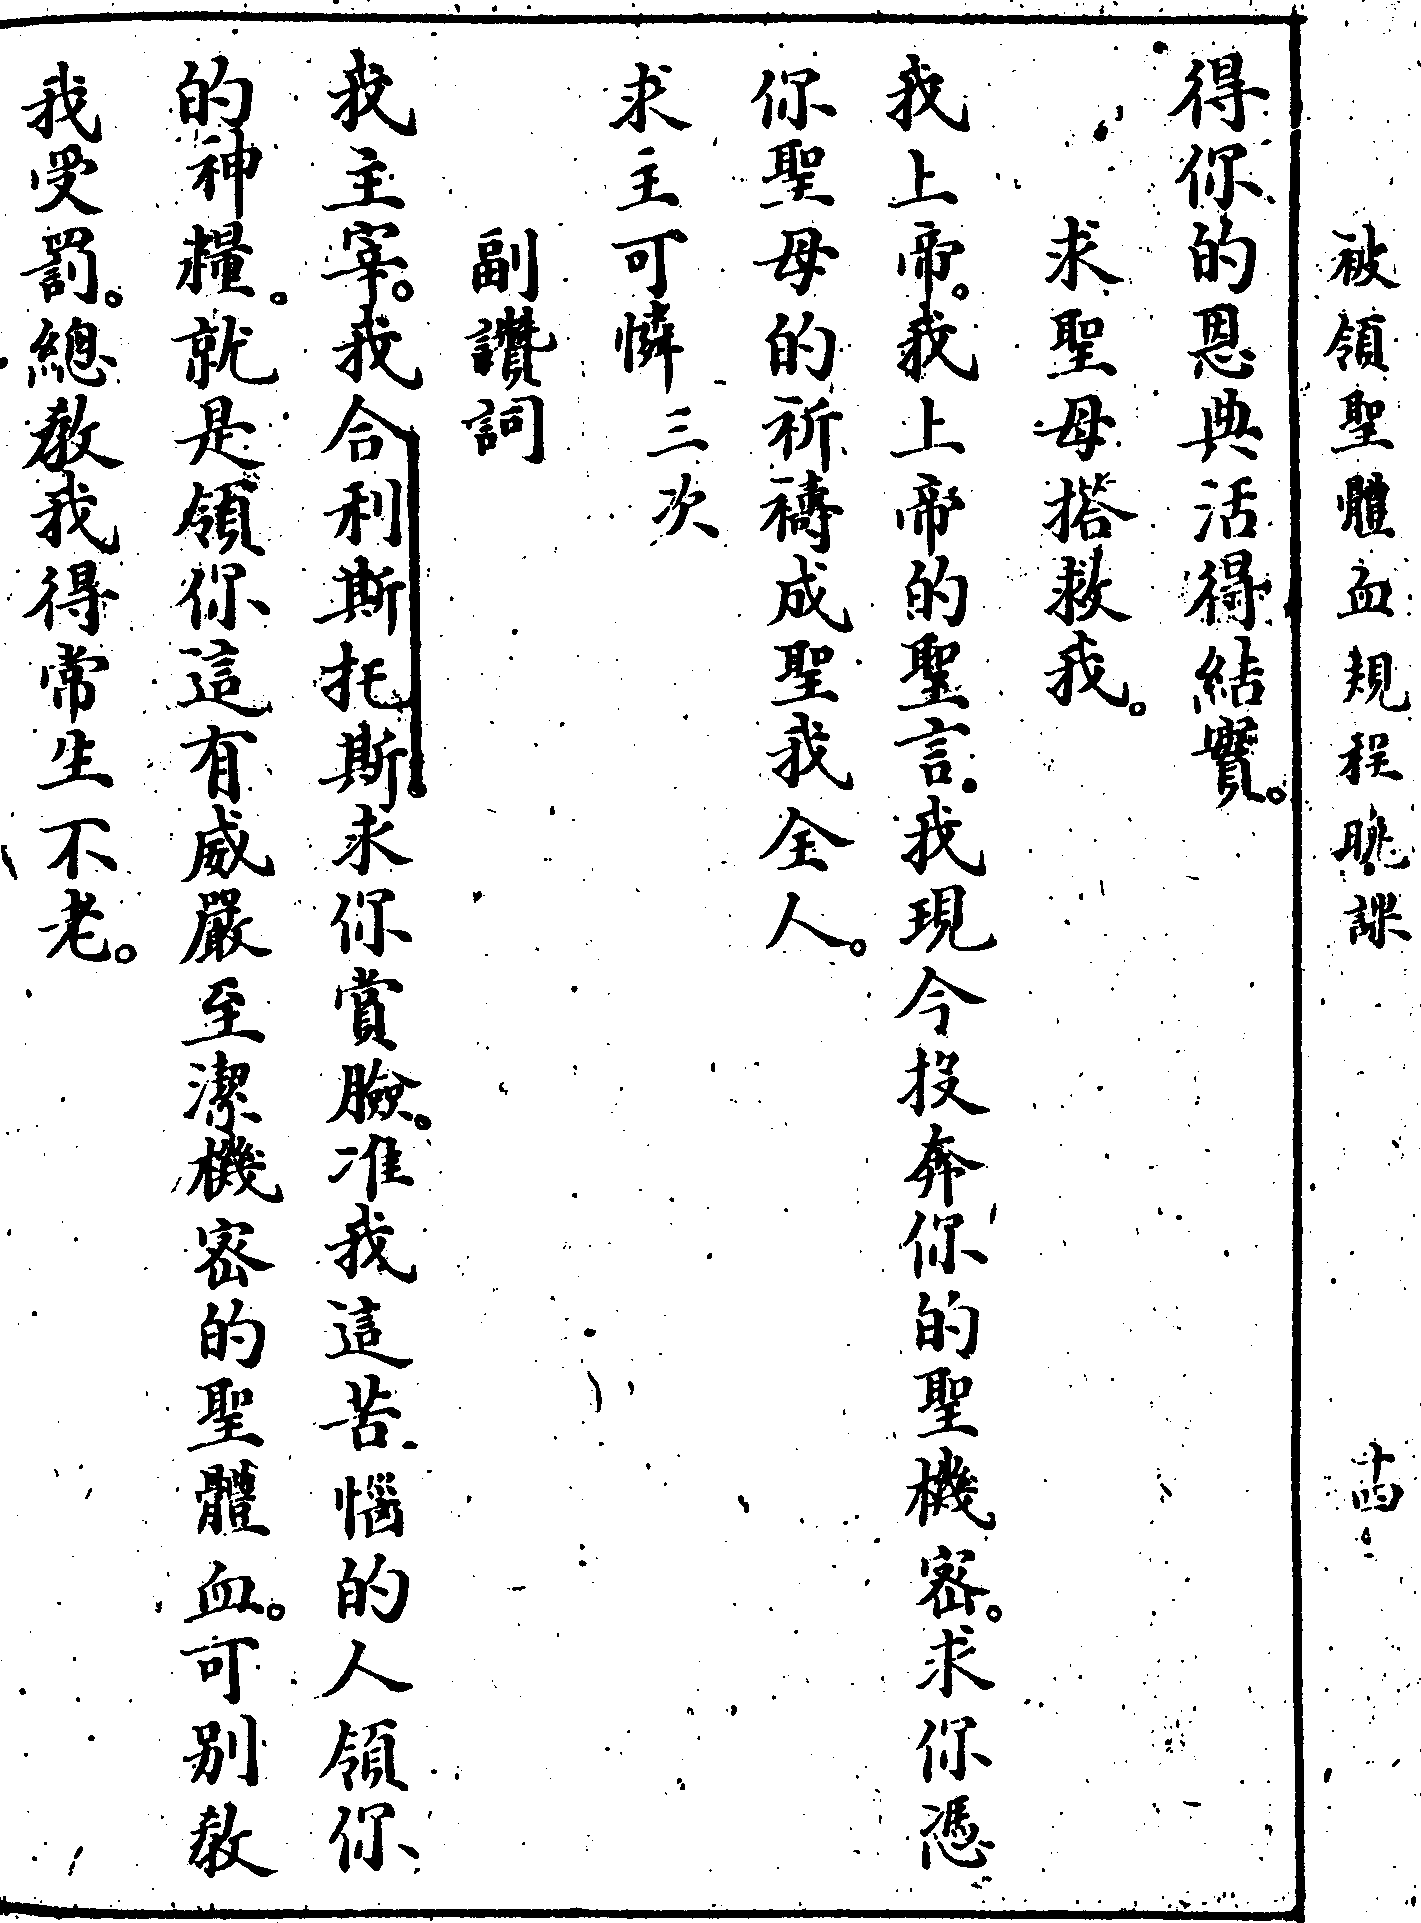 被領聖體血規程晚課 十四
得你的恩典活得結實。
求聖母搭救我。
我上帝。我上帝的聖言。我現今投奔你的聖機密。求你憑
你聖母的祈禱成聖我全人。
求主可憐 三次
副讚詞
我主宰。我合利斯托斯求你賞臉。准我這苦惱的人領你
的神糧。就是領你這有威嚴至潔機密的聖體血。可别教
我受罰。總教我得常生不老。